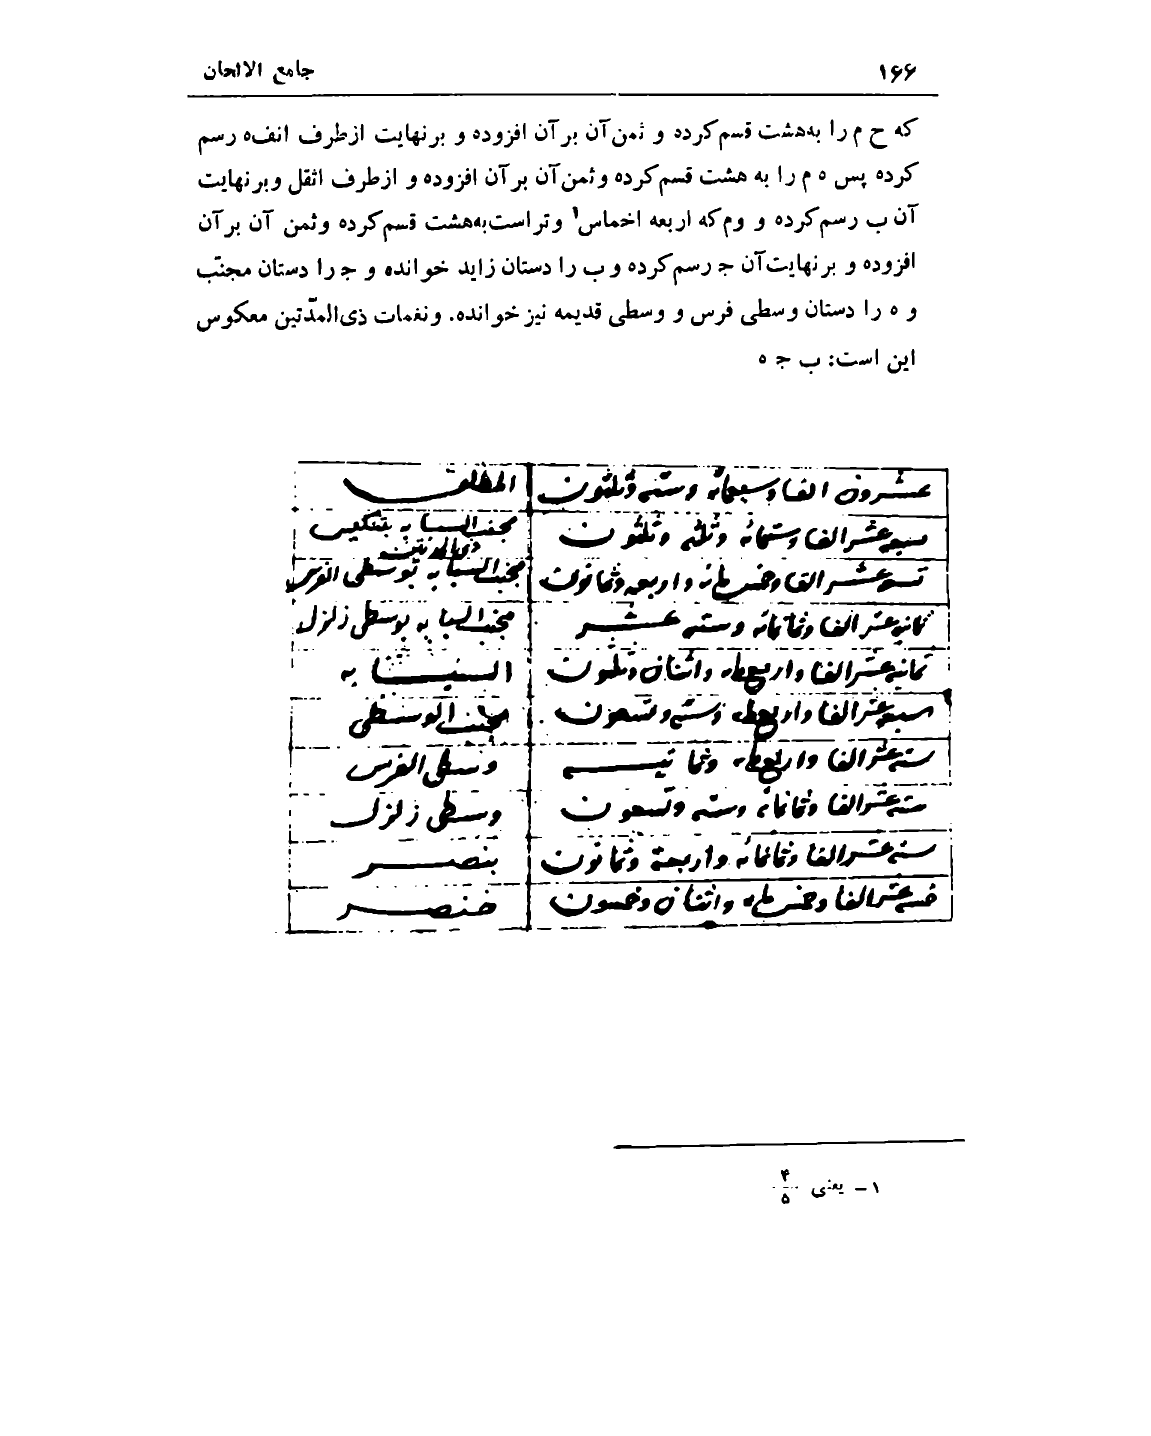 ۱۶۶ جامع الالحان
که ح م را به‌هشت قسم کرده و ثمن آن بر آن افزوده و بر نهایت از طرف انف ه رسم
کرده پس ه م را به هشت قسم کرده و ثمن آن بر آن افزوده و از طرف اثقل و بر نهایت
آن ب رسم کرده و وم که اربعه اخماس۱ وتر است به‌هشت قسم کرده و ثمن آن بر آن
افزوده و بر نهایت آن ج رسم کرده و ب را دستان زاید خوانده و ج را دستان مجنّب
و ه را دستان وسطی فرس و وسطی قدیمه نیز خوانده. و نغمات ذی‌المدّتین معکوس
این است: ب ج ه
عشرون الفا و سبعمائه و سته و ثلثون المطلق
سبعه عشر الفا و ستمائه و ثلثه و ثلثون مجنب السبابه بتنکیس
ذی المدتین
تسعه عشر الفا و خمسمائه و اربعه و ثمانون مجنب السبابه بوسطی الفرس
ثمانیه عشر الفا و ثمانمائه و سته عشر مجنب السبابه بوسطی زلزل
ثمانیه عشر الفا و اربعمائه و اثنان و ثلثون السبابه
سبعه عشر الفا و اربعمائه و سته و تسعون مجنب الوسطی
سته عشر الفا و اربعمائه و ثمانیه وسطی الفرس
سته عشر الفا و ثمانمائه و سته و تسعون وسطی زلزل
سته عشر الفا و ثمانمائه و اربعة و ثمانون بنصر
خمسه عشر الفا و خمسمائه و اثنان و خمسون خنصر
۱- یعنی ۴/۵